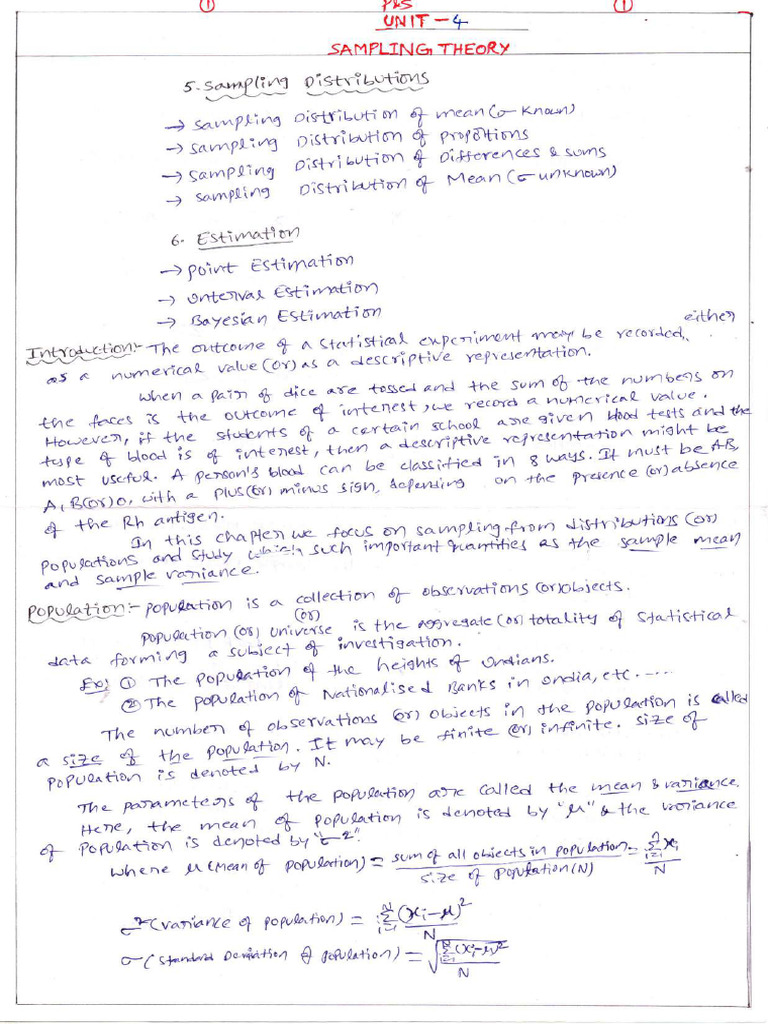 ① P&S ①
UNIT - 4
SAMPLING THEORY
5. Sampling Distributions
→ Sampling Distribution of mean (σ known)
→ Sampling Distribution of Propotions
→ Sampling Distribution of Differences & sums
→ Sampling Distribution of Mean (σ unknown)
6. Estimation
→ Point Estimation
→ Interval Estimation
→ Bayesian Estimation
Introduction:- The outcome of a statistical experiment may be recorded, either
as a numerical value (or) as a descriptive representation.
When a pair of dice are tossed and the sum of the numbers on
the faces is the outcome of interest, we record a numerical value.
However, if the students of a certain school are given blood tests and the
type of blood is of interest, then a descriptive representation might be
most useful. A person's blood can be classified in 8 ways. It must be AB,
A, B (or) O, with a plus (or) minus sign, depending on the presence (or) absence
of the Rh antigen.
In this chapter we focus on sampling from distributions (or)
populations and study such important quantities as the sample mean
and sample variance.
Population:- Population is a collection of observations (or) objects.
(or)
Population (or) universe is the aggregate (or) totality of statistical
data forming a subject of investigation.
Ex: ① The population of the heights of Indians.
② The population of Nationalised Banks in India, etc. .....
The number of observations (or) objects in the population is called
a size of the population. It may be finite (or) infinite. size of
population is denoted by N.
The parameters of the population are called the mean & variance.
Here, the mean of population is denoted by "μ" & the variance
of population is denoted by "σ²".
Where μ (Mean of population) = sum of all objects in population / size of population (N) = Σ(i=1 to n) xi / N
σ² (variance of population) = Σ(i=1 to N) (xi-μ)² / N
σ (Standard Deviation of population) = √(Σ(i=1 to N) (xi-μ)² / N)